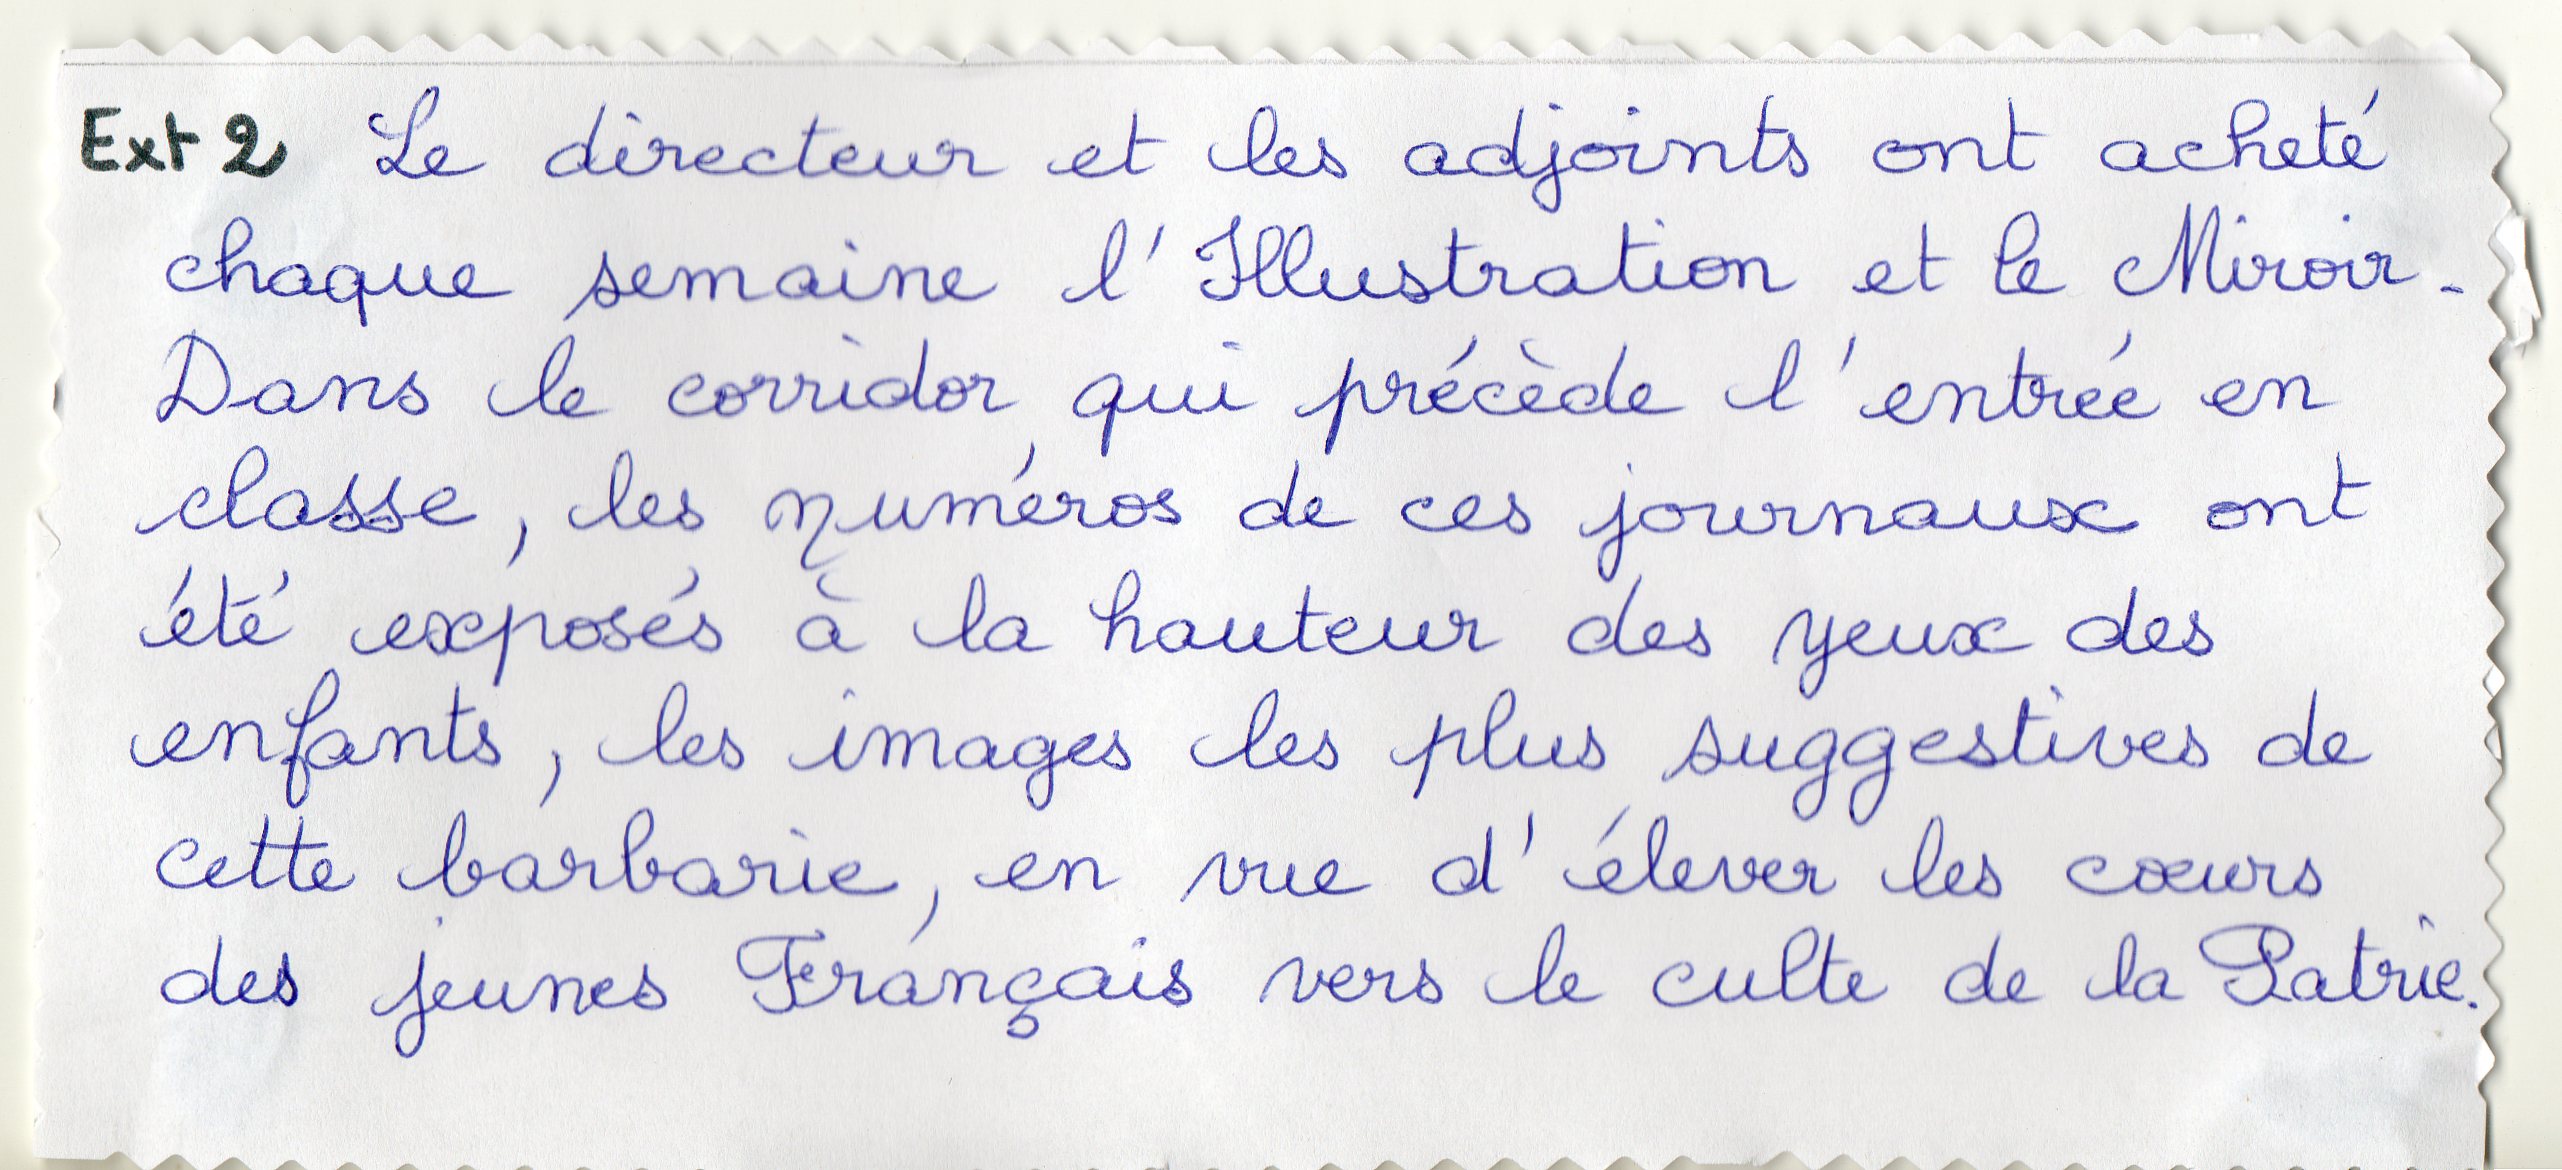 Ext 2 Le directeur et les adjoints ont acheté
chaque semaine l'Illustration et le Miroir.
Dans le corridor qui précède l'entrée en
classe, les numéros de ces journaux ont
été exposés à la hauteur des yeux des
enfants, les images les plus suggestives de
cette barbarie, en vue d'élever les cœurs
des jeunes Français vers le culte de la Patrie.